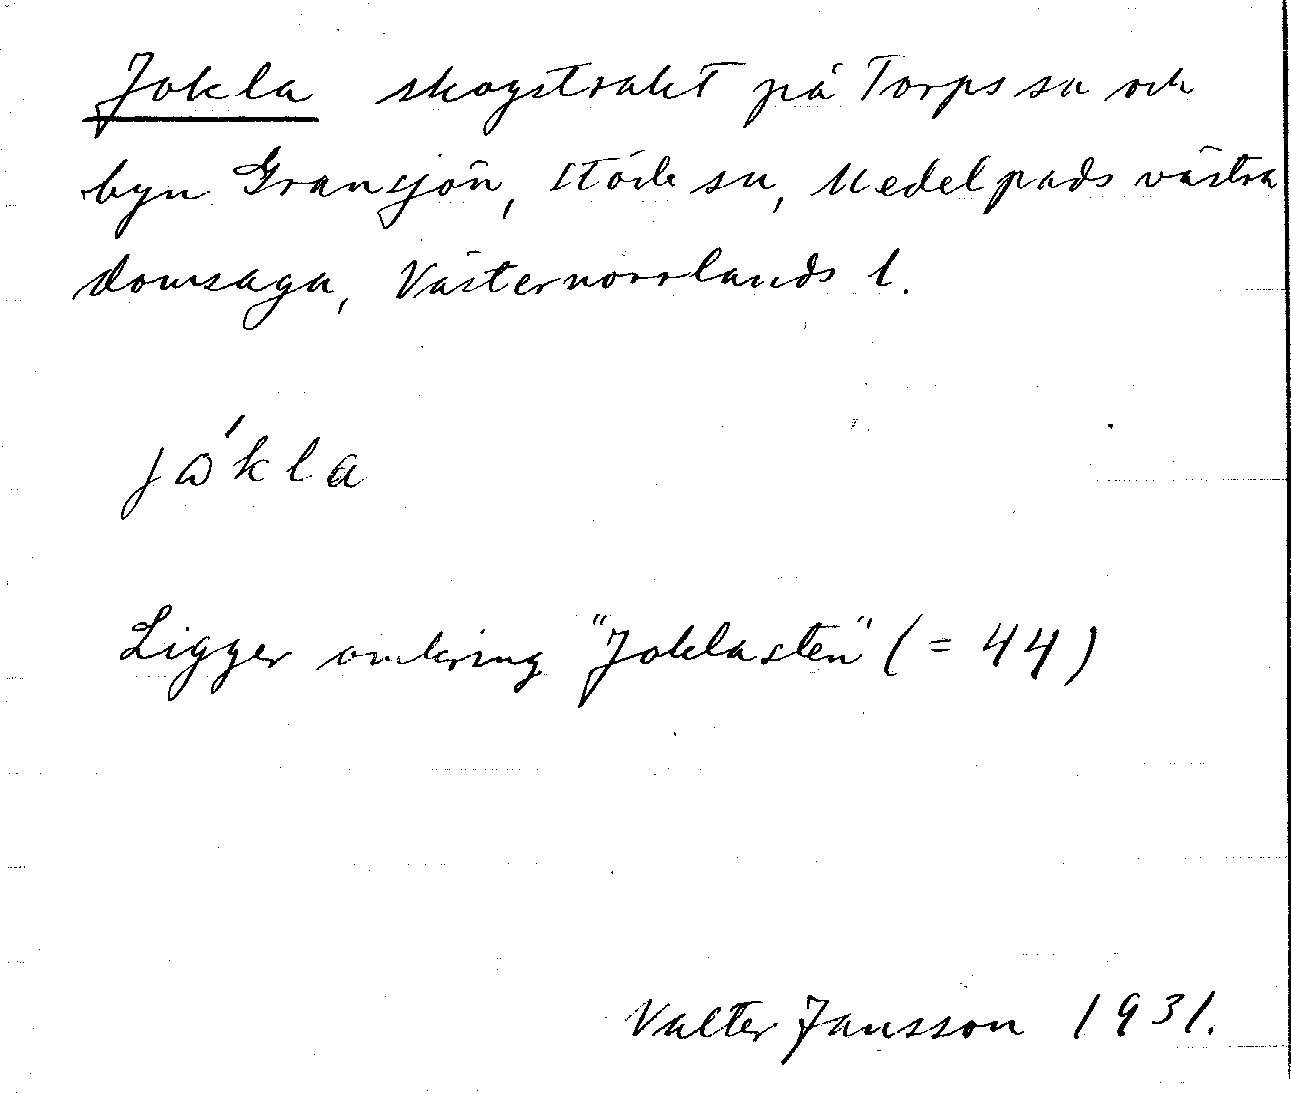 Jokla skogstrakt på Torps sn och
byn Gransjön, Stöde sn, Medelpads västra
domsaga, Västernorrlands l.
jo̍kla
Ligger omkring "Joklasten" (= 44)
Valter Jansson 1931.